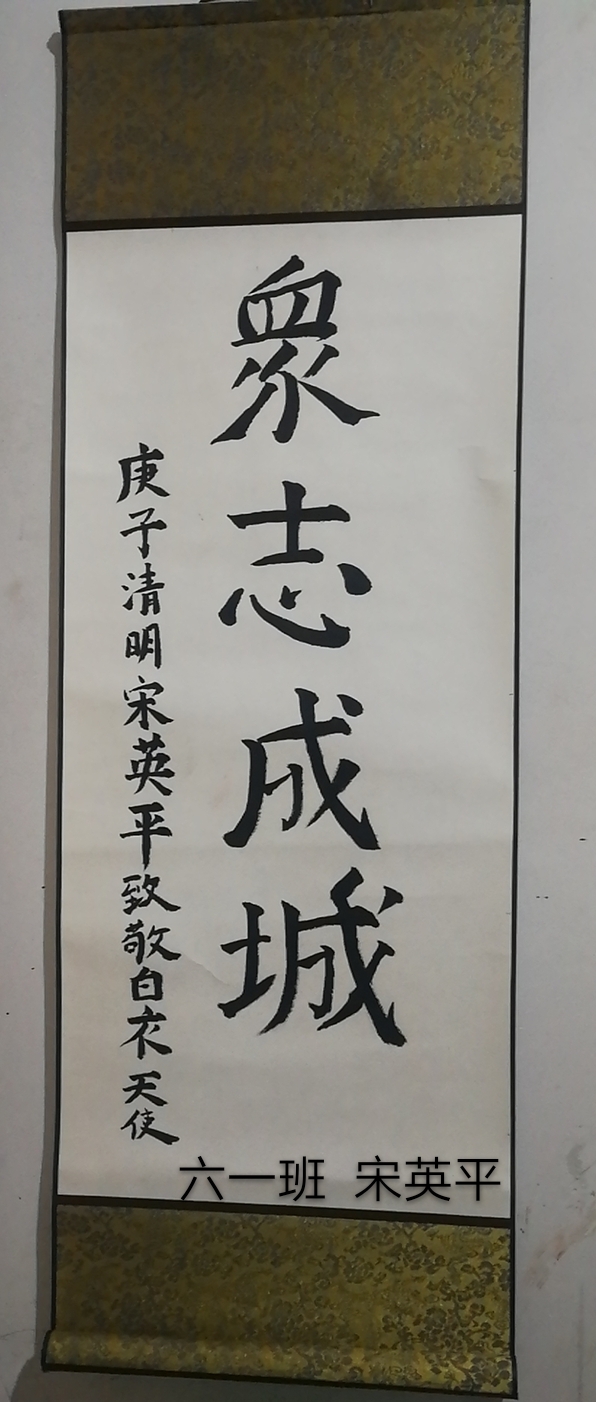 眾志成城
庚子清明宋英平致敬白衣天使
六一班 宋英平